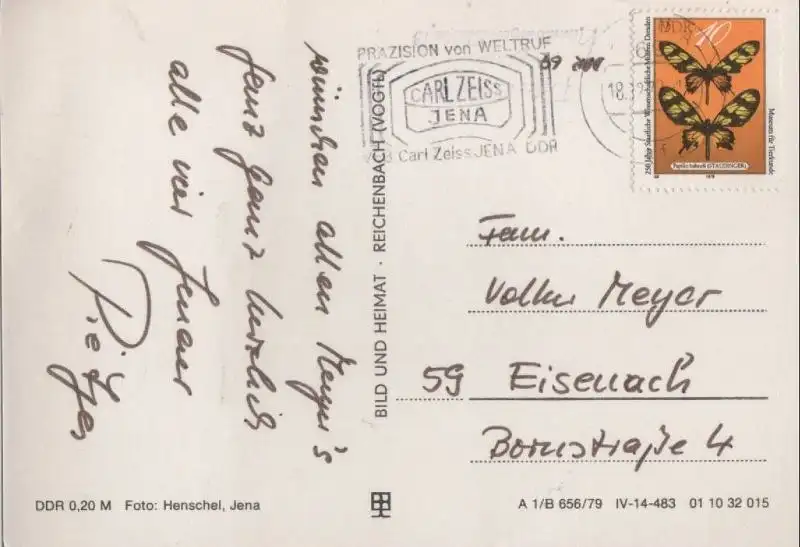 wünschen allen Meyer's
ganz ganz herzlich
alle vier Jenaer
PRÄZISION von WELTRUF
CARL ZEISS
JENA
Carl Zeiss JENA DDR
DDR
10
250 Jahre Staatliche Wissenschaftliche Museen Dresden
Museum für Tierkunde
Papilio hahneli (STAUDINGER)
1978
BILD UND HEIMAT · REICHENBACH (VOGTL)
Fam.
Volker Meyer
59 Eisenach
Bornstraße 4
DDR 0,20 M Foto: Henschel, Jena
A 1/B 656/79 IV-14-483 01 10 32 015